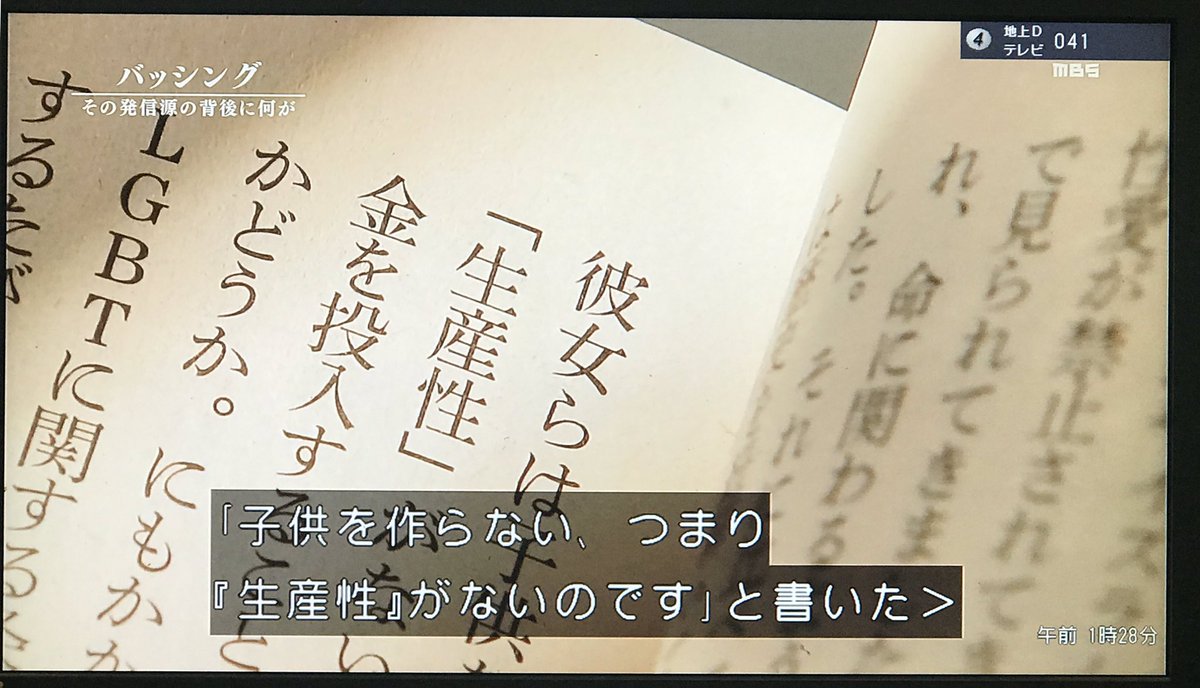 バッシング
その発信源の背後に何が
4 地上D
テレビ 041
MBS
性愛が禁止されて
で見られてきま
れ、命に関わる
した。それ
彼女らは子供
「生産性」がない
金を投入すること
かどうか。にもかか
LGBTに関する
する
「子供を作らない、つまり
『生産性』がないのです」と書いた>
午前 1時28分